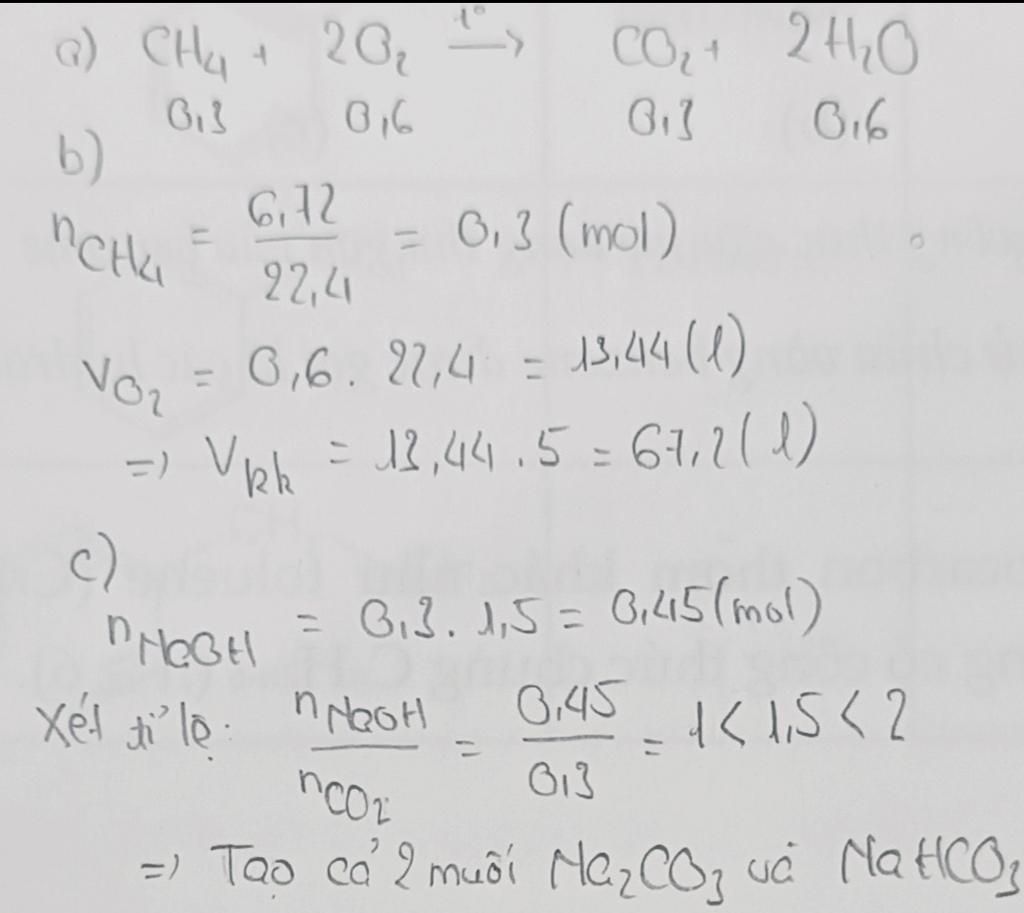 a) CH₄ + 2O₂ —t°→ CO₂ + 2H₂O
0,3 0,6 0,3 0,6
b)
nCH₄ = 6,72/22,4 = 0,3 (mol)
VO₂ = 0,6 . 22,4 = 13,44 (l)
=> Vkk = 13,44 . 5 = 67,2 (l)
c)
nNaOH = 0,3 . 1,5 = 0,45 (mol)
Xét tỉ lệ: nNaOH/nCO₂ = 0,45/0,3 = 1 < 1,5 < 2
=> Tạo cả 2 muối Na₂CO₃ và NaHCO₃